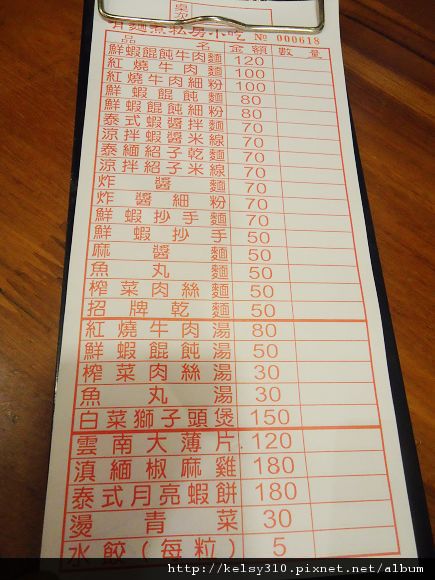 桌次
月麵煮私房小吃 № 000618
品名 金額 數量
鮮蝦餛飩牛肉麵 120
紅燒牛肉麵 100
紅燒牛肉細粉 100
鮮蝦餛飩麵 80
鮮蝦餛飩細粉 80
泰式蝦醬拌麵 70
涼拌蝦醬米線 70
泰緬紹子乾麵 70
涼拌紹子米線 70
炸醬麵 70
炸醬細粉 70
鮮蝦抄手麵 70
鮮蝦抄手 50
麻醬麵 50
魚丸麵 50
榨菜肉絲麵 50
招牌乾麵 50
紅燒牛肉湯 80
鮮蝦餛飩湯 50
榨菜肉絲湯 30
魚丸湯 30
白菜獅子頭煲 150
雲南大薄片 120
滇緬椒麻雞 180
泰式月亮蝦餅 180
燙青菜 30
水餃(每粒) 5
http://kelsy310.pixnet.net/album